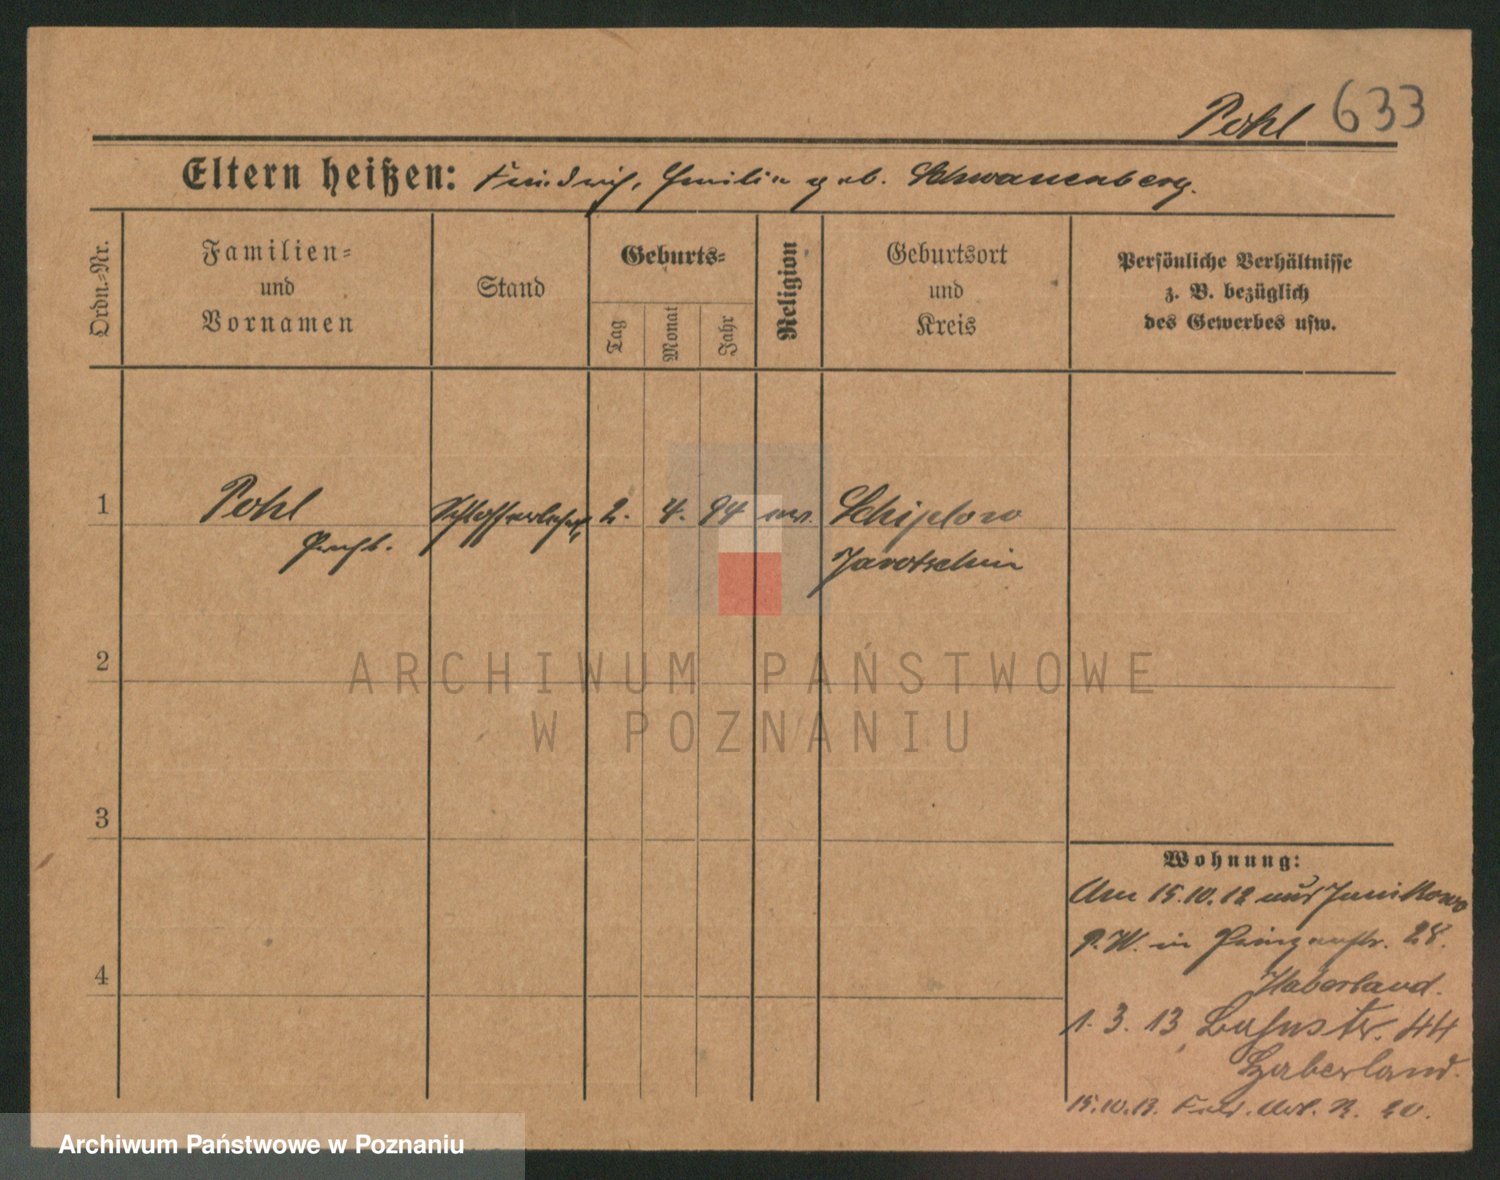 Pohl 633
Eltern heißen: Friedrich, Emilie geb. Schwanenberg.
Ordn.-Nr.
Familien-
und
Vornamen
Stand
Geburts-
Tag
Monat
Jahr
Religion
Geburtsort
und
Kreis
Persönliche Verhältnisse
z. B. bezüglich
des Gewerbes usw.
1 Pohl Schlosserlehrl. 2. 4. 94 ev. Schiplow
Jarotschin
2
3
4
Wohnung:
Am 15.10.12 aus Junikowo
P. W. in Prinzenstr. 28.
Haberland.
1. 3. 13 44
Haberland.
15.10.13. 20.
ARCHIWUM PAŃSTWOWE
W POZNANIU
Archiwum Państwowe w Poznaniu